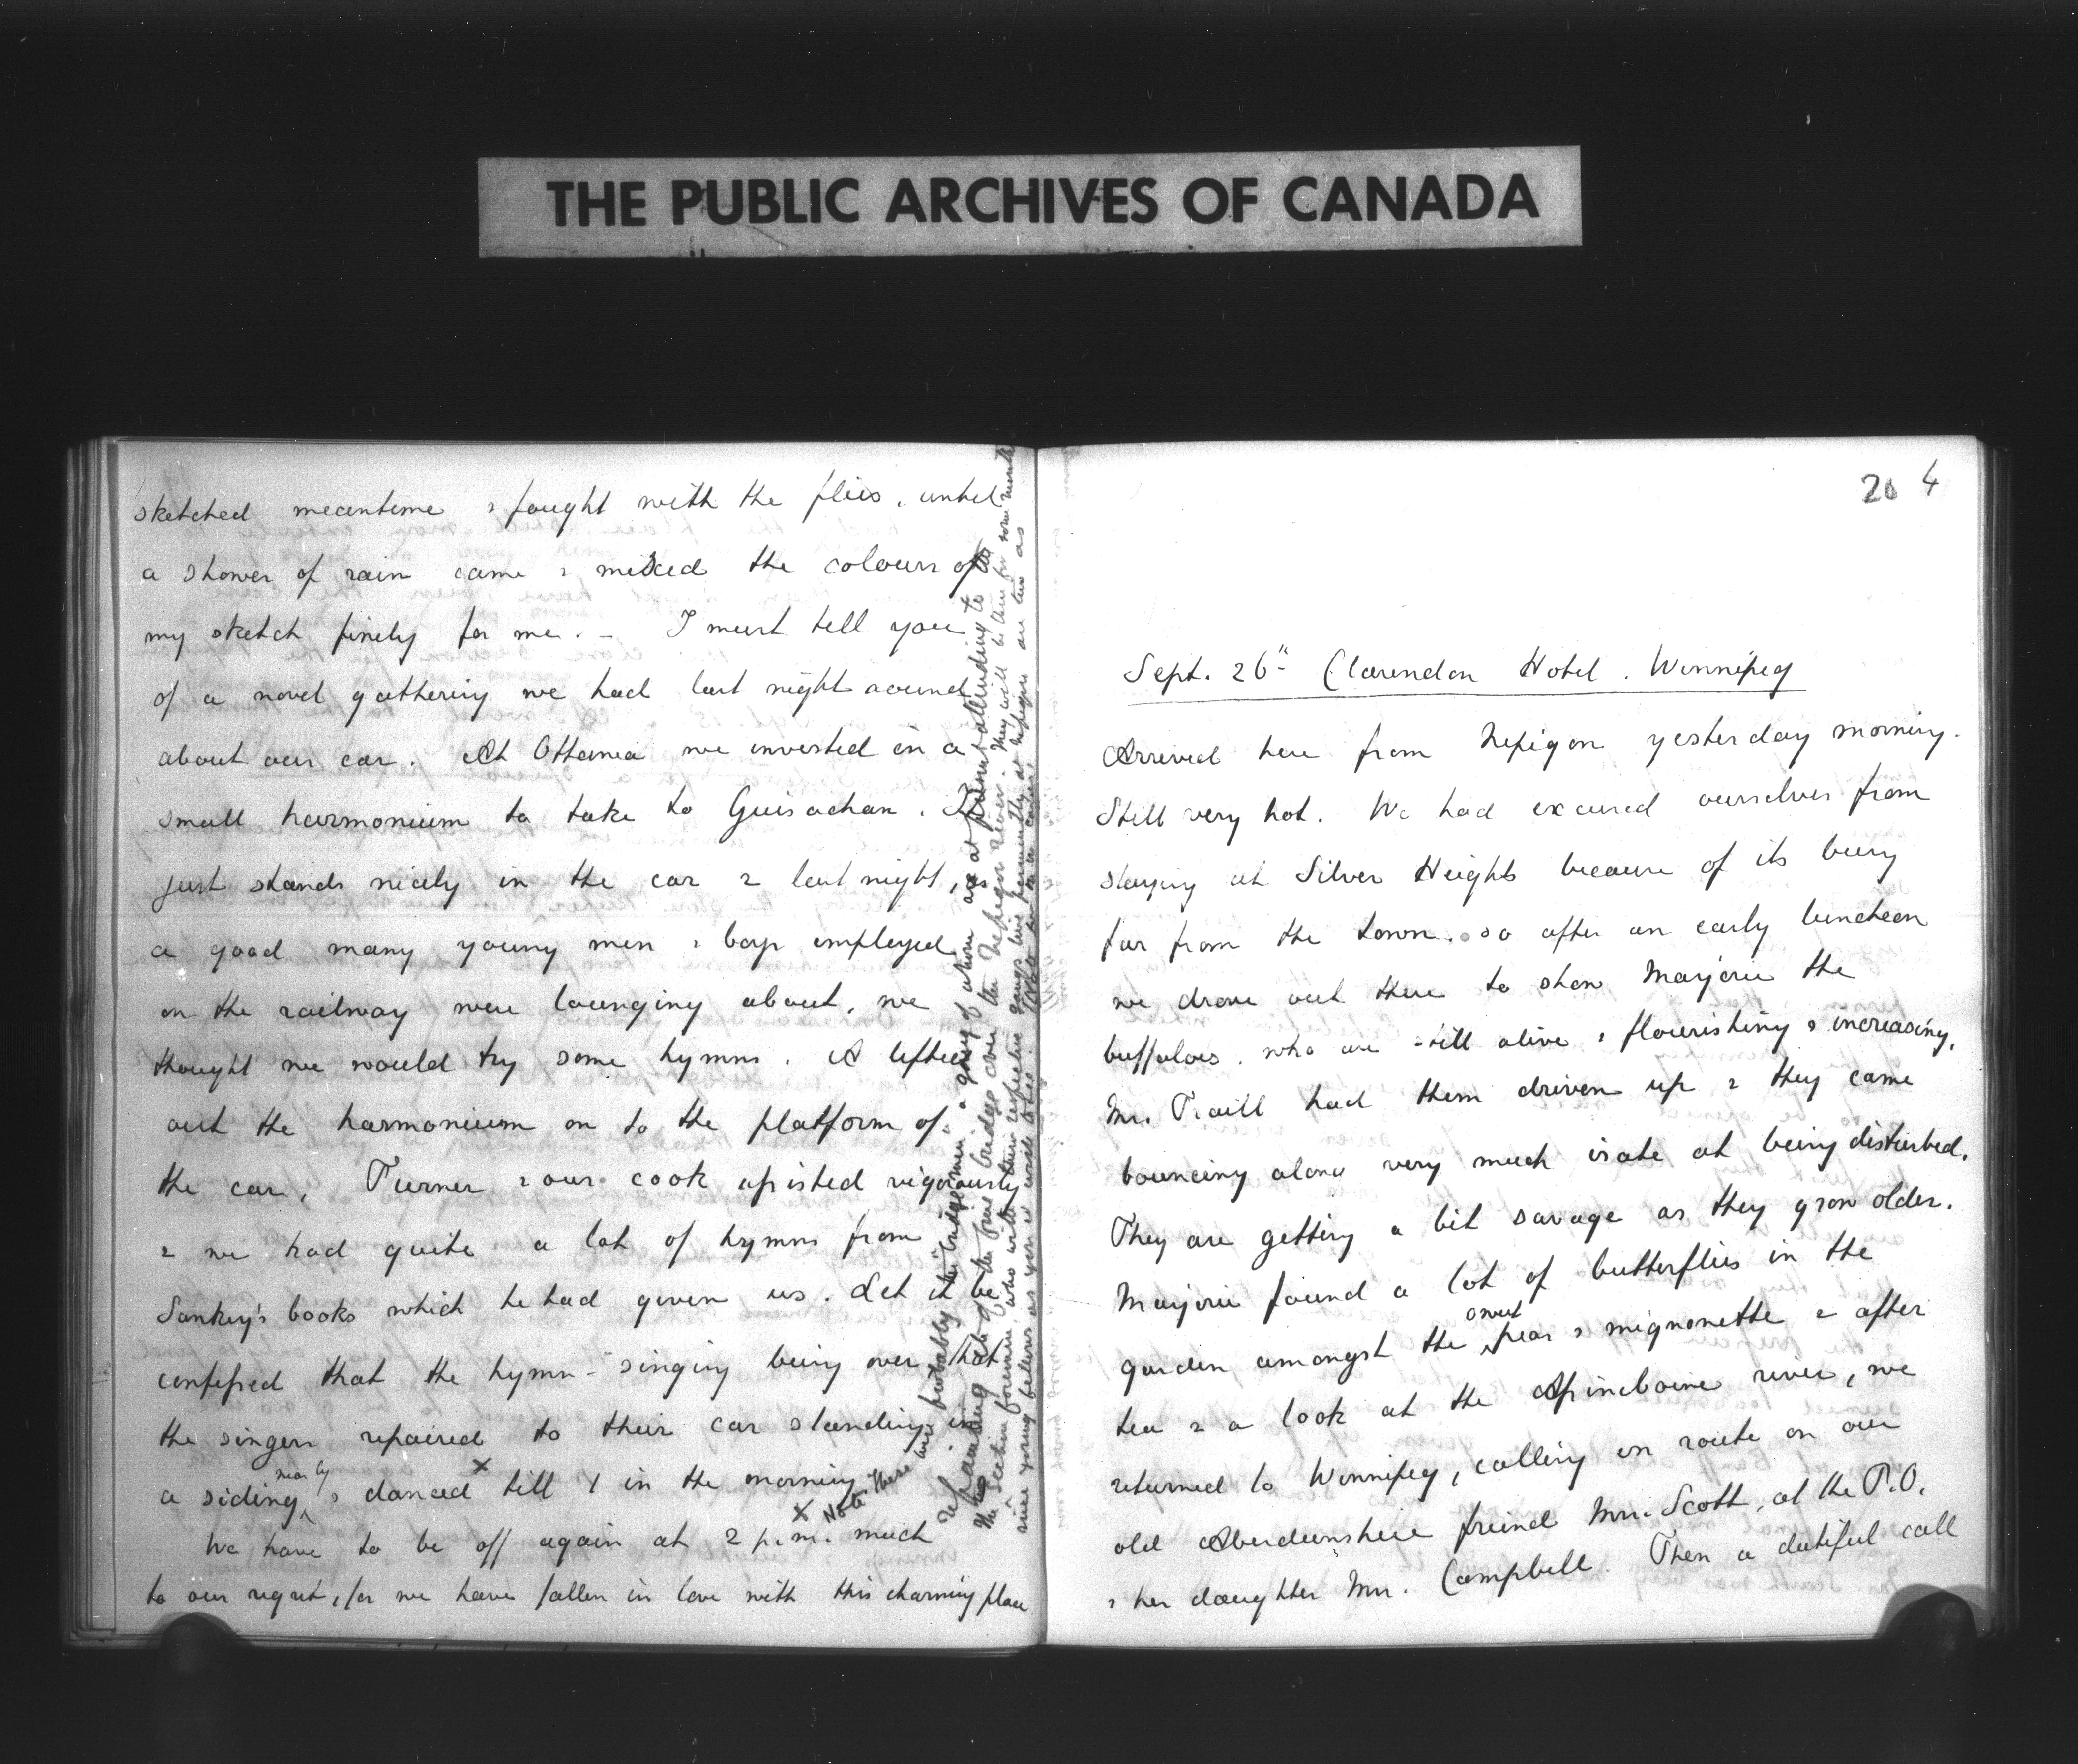 THE PUBLIC ARCHIVES OF CANADA
sketched meantime & fought with the flies, until
a shower of rain came & mixed the colours of
my sketch finely for me. - I must tell you
of a novel gathering we had last night around
about our car. At Ottawa we invested in a
small harmonium to take to Guisachan. It
just stands nicely in the car & last night, as
a good many young men & boys employed
on the railway were lounging about, we
thought we would try some hymns. A lifted
out the harmonium on to the platform of
the car, Turner & our cook assisted vigorously
& we had quite a lot of hymns from
Sankey's books which he had given us. Let it be
confessed that the hymn-singing being over that
the singers repaired to their car standing in
a siding near by & danced till 1 in the morning
We have to be off again at 2 p.m. much
to our regret, for we have fallen in love with this charming place
X Note These were probably the "bridgemen" a gang of whom are at present attending to the
repainting &c of the fine bridge over the Nepigon river. They will be there for some months
The section foremen, who with their respective gangs live permanently at Nepigon are two as
nice young fellows as you'd wish to see.
20 4
Sept. 26th Clarendon Hotel. Winnipeg
Arrived here from Nepigon yesterday morning.
Still very hot. We had excused ourselves from
staying at Silver Heights because of its being
far from the town. so after an early luncheon
we drove out there to show Marjorie the
buffaloes. who are still alive & flourishing & increasing.
Mr. Traill had them driven up & they came
bouncing along very much irate at being disturbed.
They are getting a bit savage as they grow older.
Marjorie found a lot of butterflies in the
garden amongst the sweet peas & mignonette & after
tea & a look at the Assineboine river, we
returned to Winnipeg, calling en route on our
old Aberdeenshire freind Mrs. Scott, at the P.O.
& her daughter Mrs. Campbell. Then a dutiful call